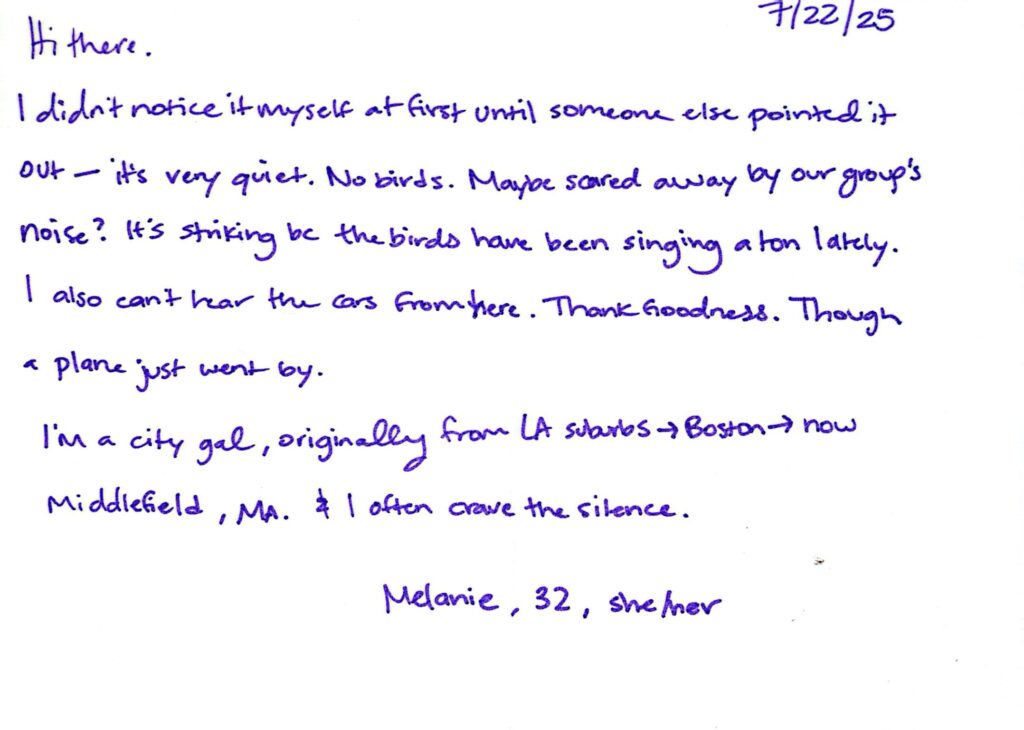 7/22/25
Hi there.
I didn't notice it myself at first until someone else pointed it
out — it's very quiet. No birds. Maybe scared away by our group's
noise? It's striking bc the birds have been singing a ton lately.
I also can't hear the cars from here. Thank Goodness. Though
a plane just went by.
I'm a city gal, originally from LA suburbs → Boston → now
Middlefield, MA. & I often crave the silence.
Melanie, 32, she/her